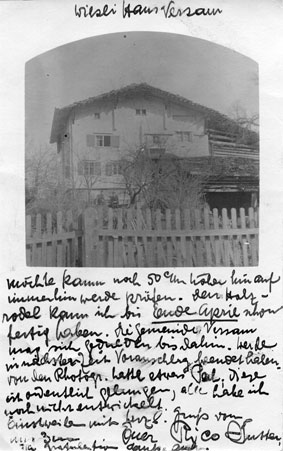 Wiesli Haus Versam
möchte kaum noch 50 cm höher hinauf
immerhin werde prüfen. Das Holz-
model kann ich bis Ende April schon
fertig haben. Die Gemeinde Versam
mag sich gedulden bis dahin. Werde
in nächster Zeit Voranschlag beendet haben.
von den Photogr. hatte etwas Pech. Diese
ist ordentlich gelungen, alle habe ich
noch nicht entwickelt.
Einstweilen mit herzl. Gruß von
Euer Rico Sutter